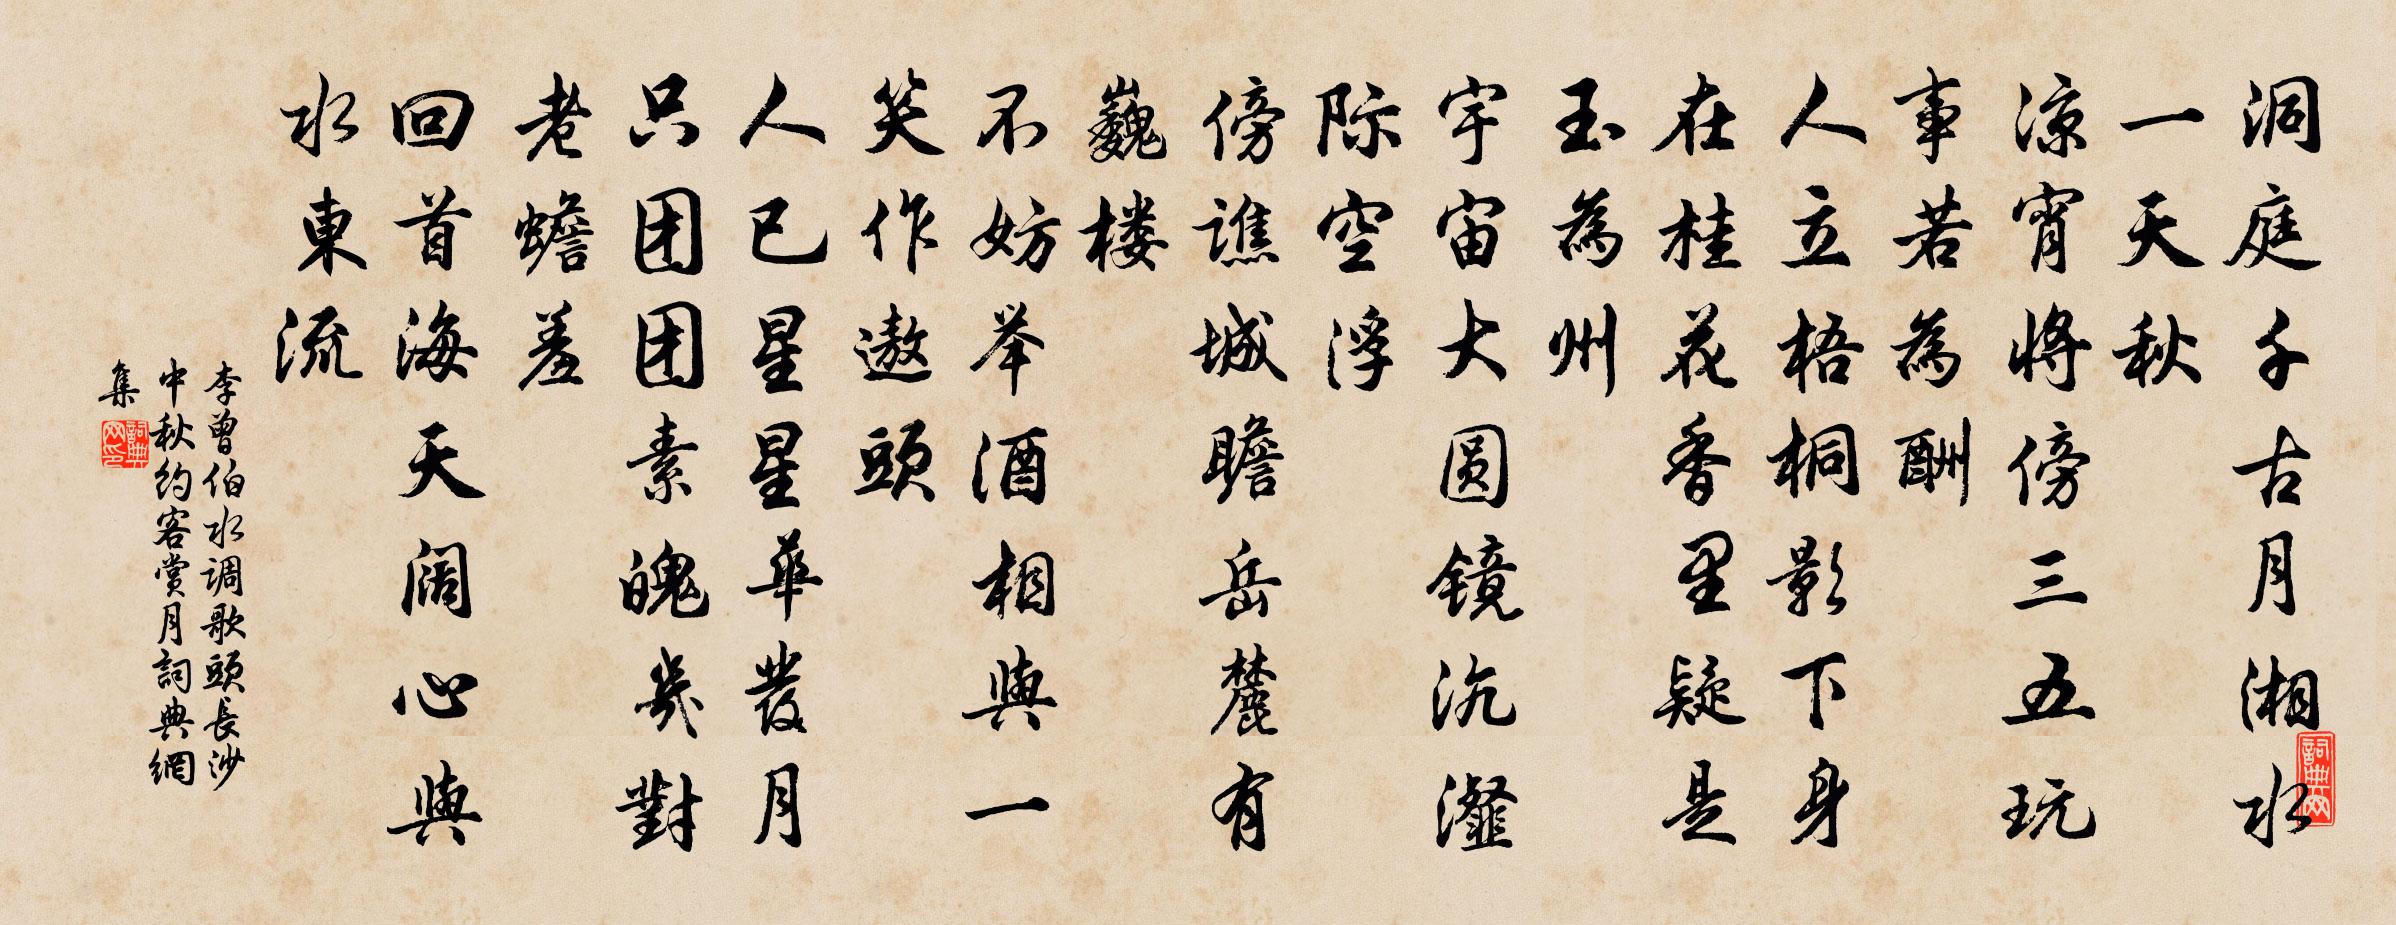 洞庭千古月湘水
一天秋
涼宵將傍三五玩
事若為酬
人立梧桐影下身
在桂花香里疑是
玉為州
宇宙大圆镜沆瀣
际空浮
傍譙城瞻岳麓有
巍楼
不妨举酒相與一
笑作遨頭
人已星星華發月
只团团素魄幾對
老蟾羞
回首海天阔心與
水東流
李曾伯水调歌頭長沙
中秋约客赏月詞典網
集
詞典网
詞典网印